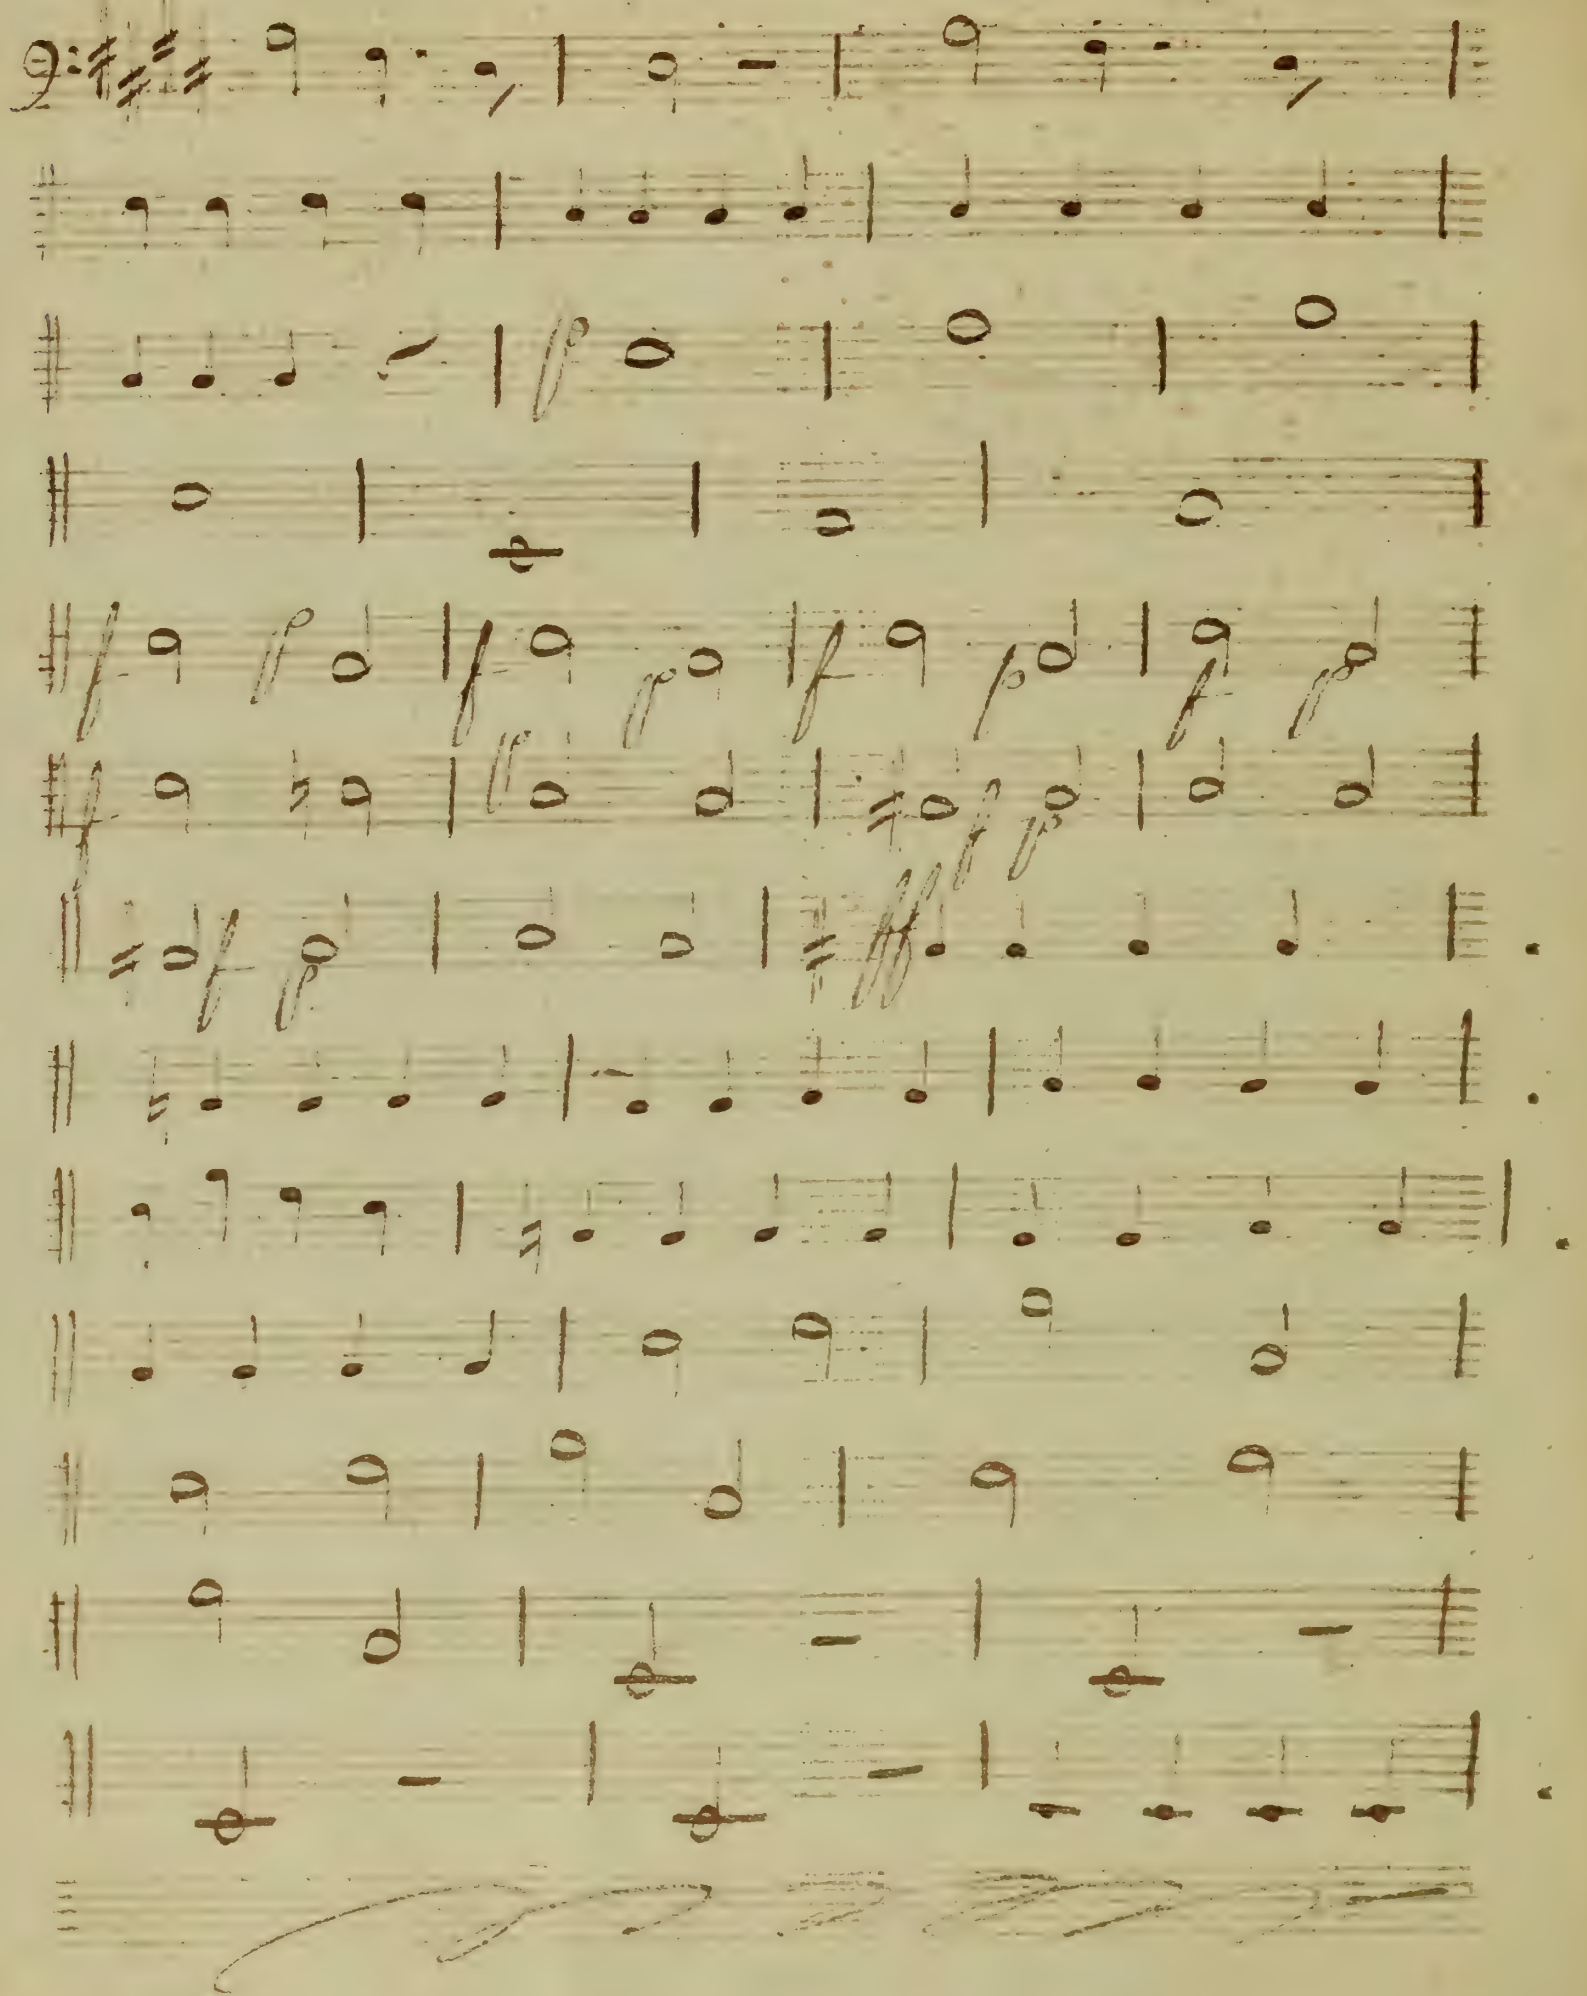 p
f p f p f p f p
f p f p
f p ff